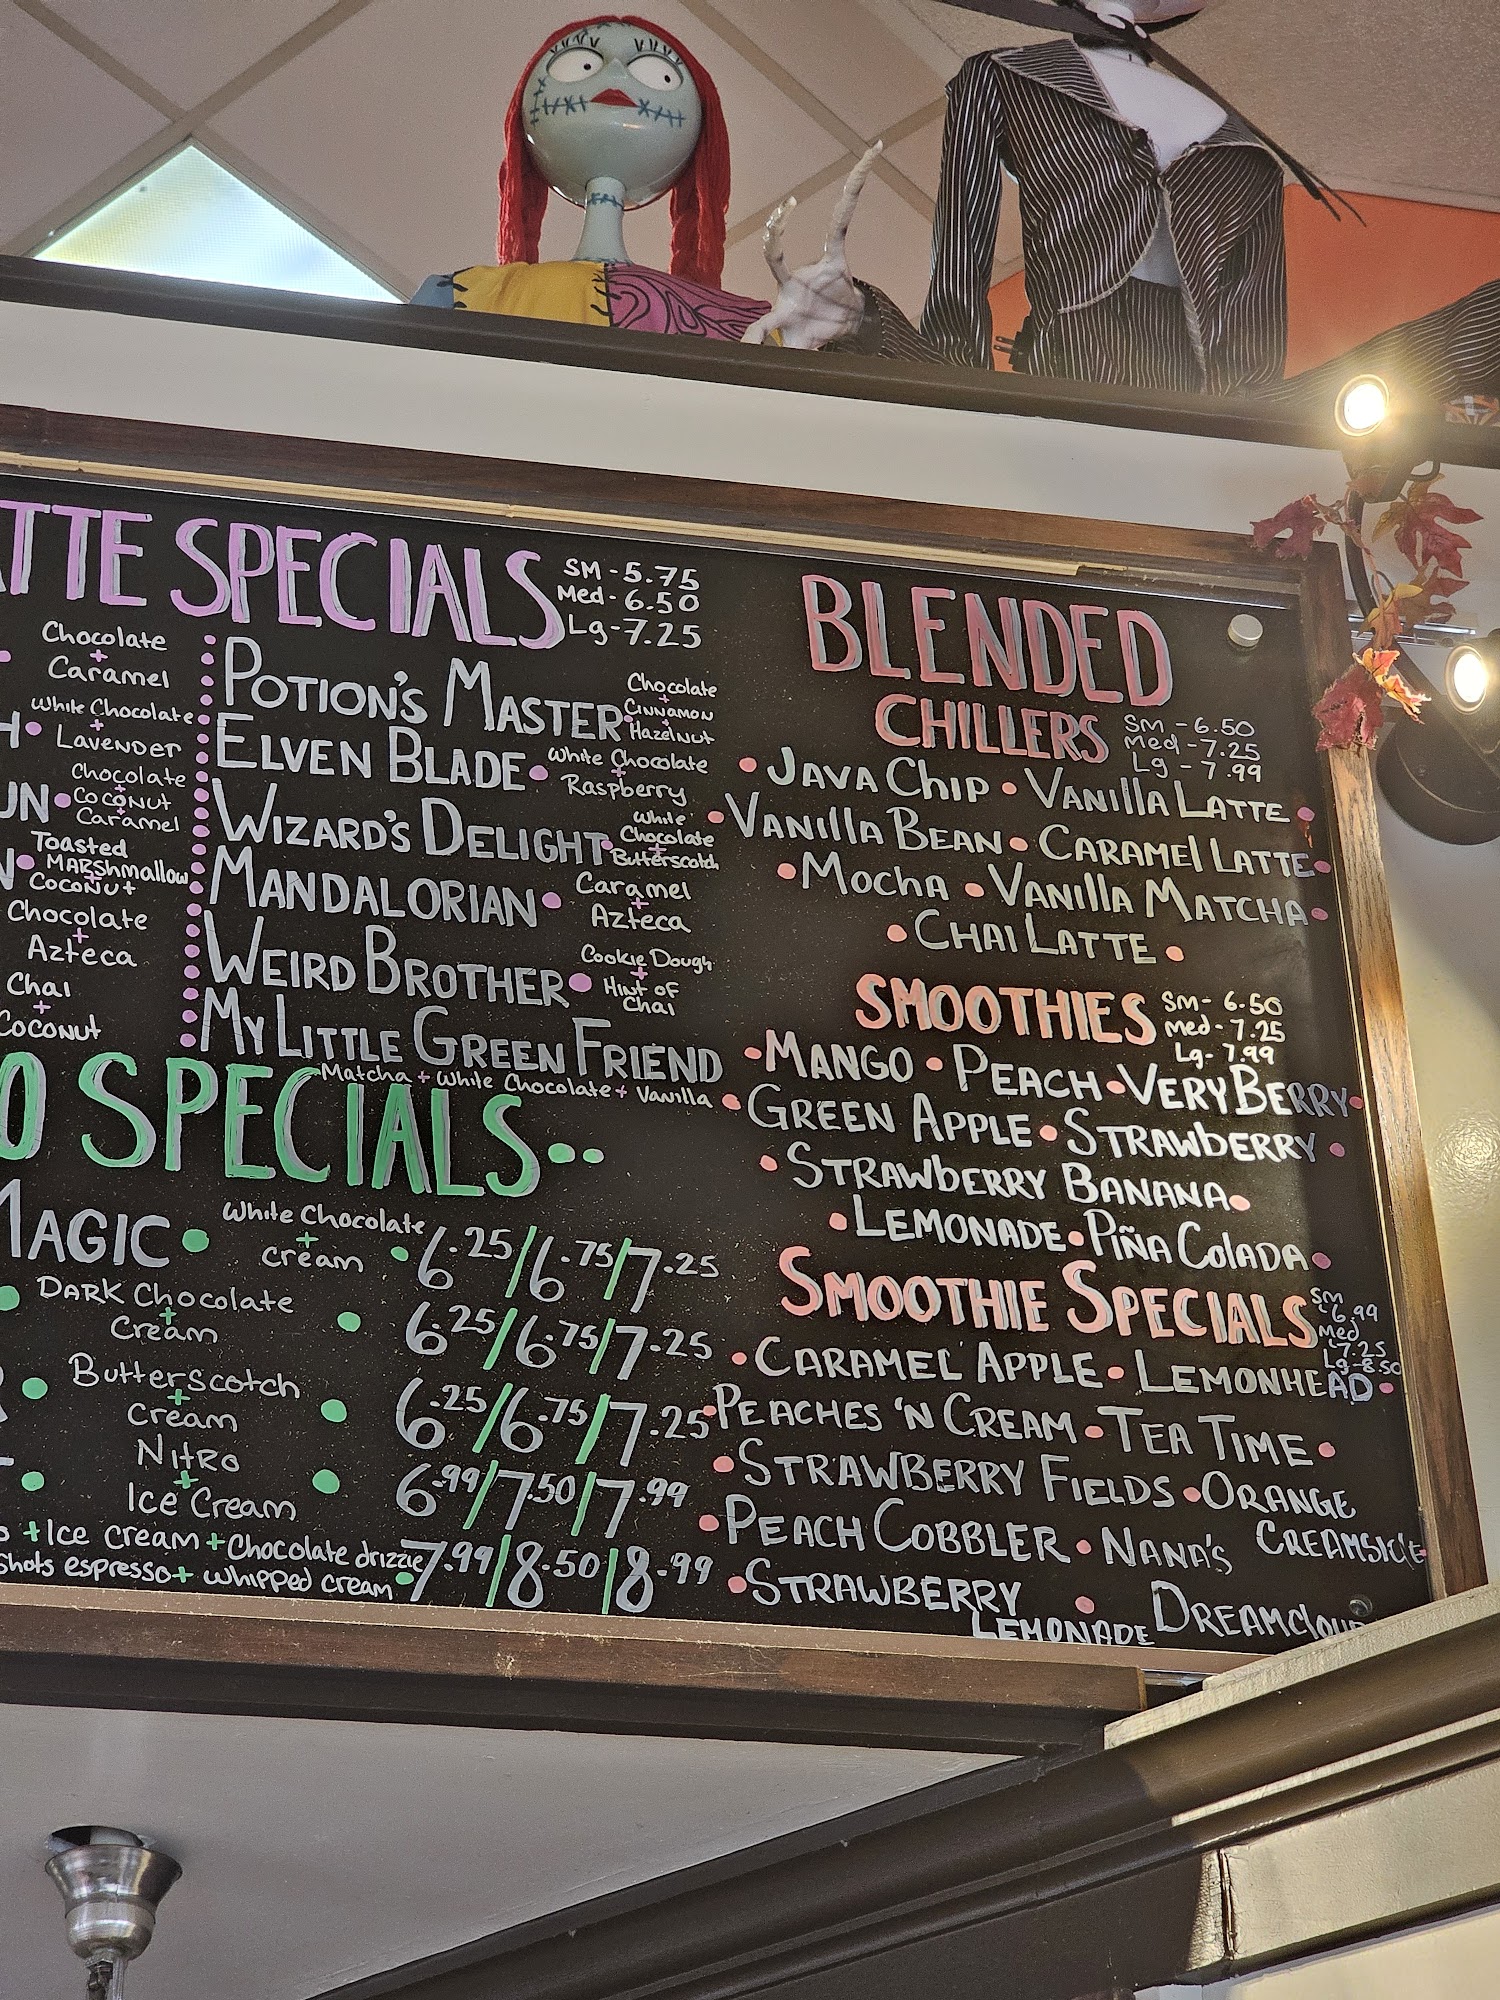 TTE SPECIALS
SM - 5.75
Med - 6.50
Lg - 7.25
Chocolate
+
Caramel
White Chocolate
+
Lavender
Chocolate
Coconut
+
Caramel
Toasted
Marshmallow
+
Coconut
Chocolate
+
Azteca
Chai
+
Coconut
Potion's Master
Chocolate
+
Cinnamon
+
Hazelnut
Elven Blade • White Chocolate
+
Raspberry
Wizard's Delight • White
Chocolate
+
Butterscotch
Mandalorian • Caramel
+
Azteca
Weird Brother • Cookie Dough
+
Hint of
Chai
My Little Green Friend
Matcha + White Chocolate + Vanilla
O SPECIALS••
Magic • White Chocolate
+
cream • 6.25/6.75/7.25
• Dark Chocolate
+
Cream • 6.25/6.75/7.25
• Butterscotch
+
Cream • 6.25/6.75/7.25
• Nitro
+
Ice Cream • 6.99/7.50/7.99
+ Ice cream + Chocolate drizzle
shots espresso + whipped cream • 7.99/8.50/8.99
BLENDED
CHILLERS
SM - 6.50
Med - 7.25
Lg - 7.99
• Java Chip • Vanilla Latte •
• Vanilla Bean • Caramel Latte •
• Mocha • Vanilla Matcha •
• Chai Latte •
SMOOTHIES
SM - 6.50
Med - 7.25
Lg - 7.99
• Mango • Peach • Very Berry •
• Green Apple • Strawberry •
• Strawberry Banana •
• Lemonade • Piña Colada •
Smoothie Specials
SM
6.99
Med
7.25
Lg - 8.50
• Caramel Apple • Lemonhead •
• Peaches 'n Cream • Tea Time •
• Strawberry Fields • Orange
Creamsicle
• Peach Cobbler • Nana's
• Strawberry
Lemonade
• Dreamcloud